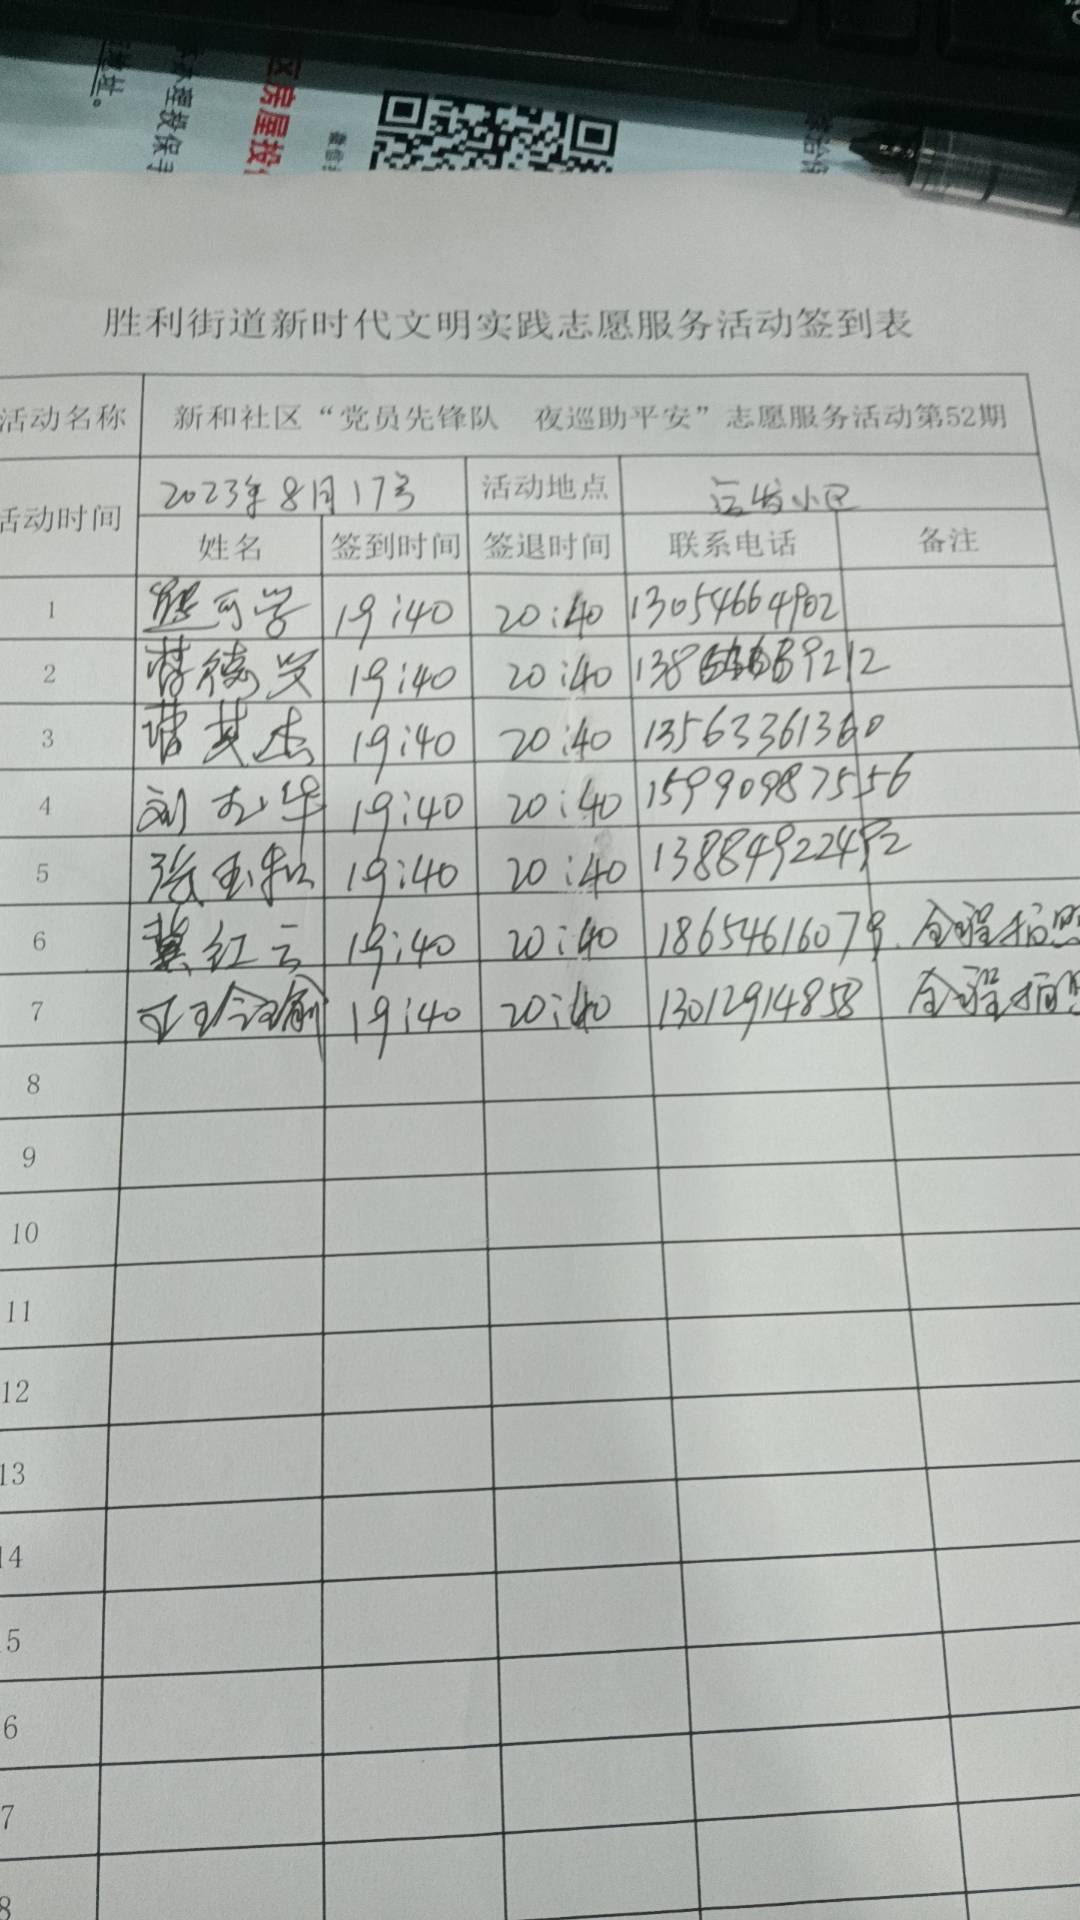 区房屋投
胜利街道新时代文明实践志愿服务活动签到表
活动名称 新和社区“党员先锋队 夜巡助平安”志愿服务活动第52期
活动时间 2023年8月17号 活动地点 小区
姓名 签到时间 签退时间 联系电话 备注
1 19:40 20:40 13054664902
2 德兴 19:40 20:40 138 9212
3 曹其杰 19:40 20:40 13563361360
4 刘 华 19:40 20:40 15990987556
5 张玉 19:40 20:40 13884922492
6 冀红云 19:40 20:40 18654616079 全程拍照
7 19:40 20:40 13012914858 全程拍照
8
9
10
11
12
13
14
15
6
7
8